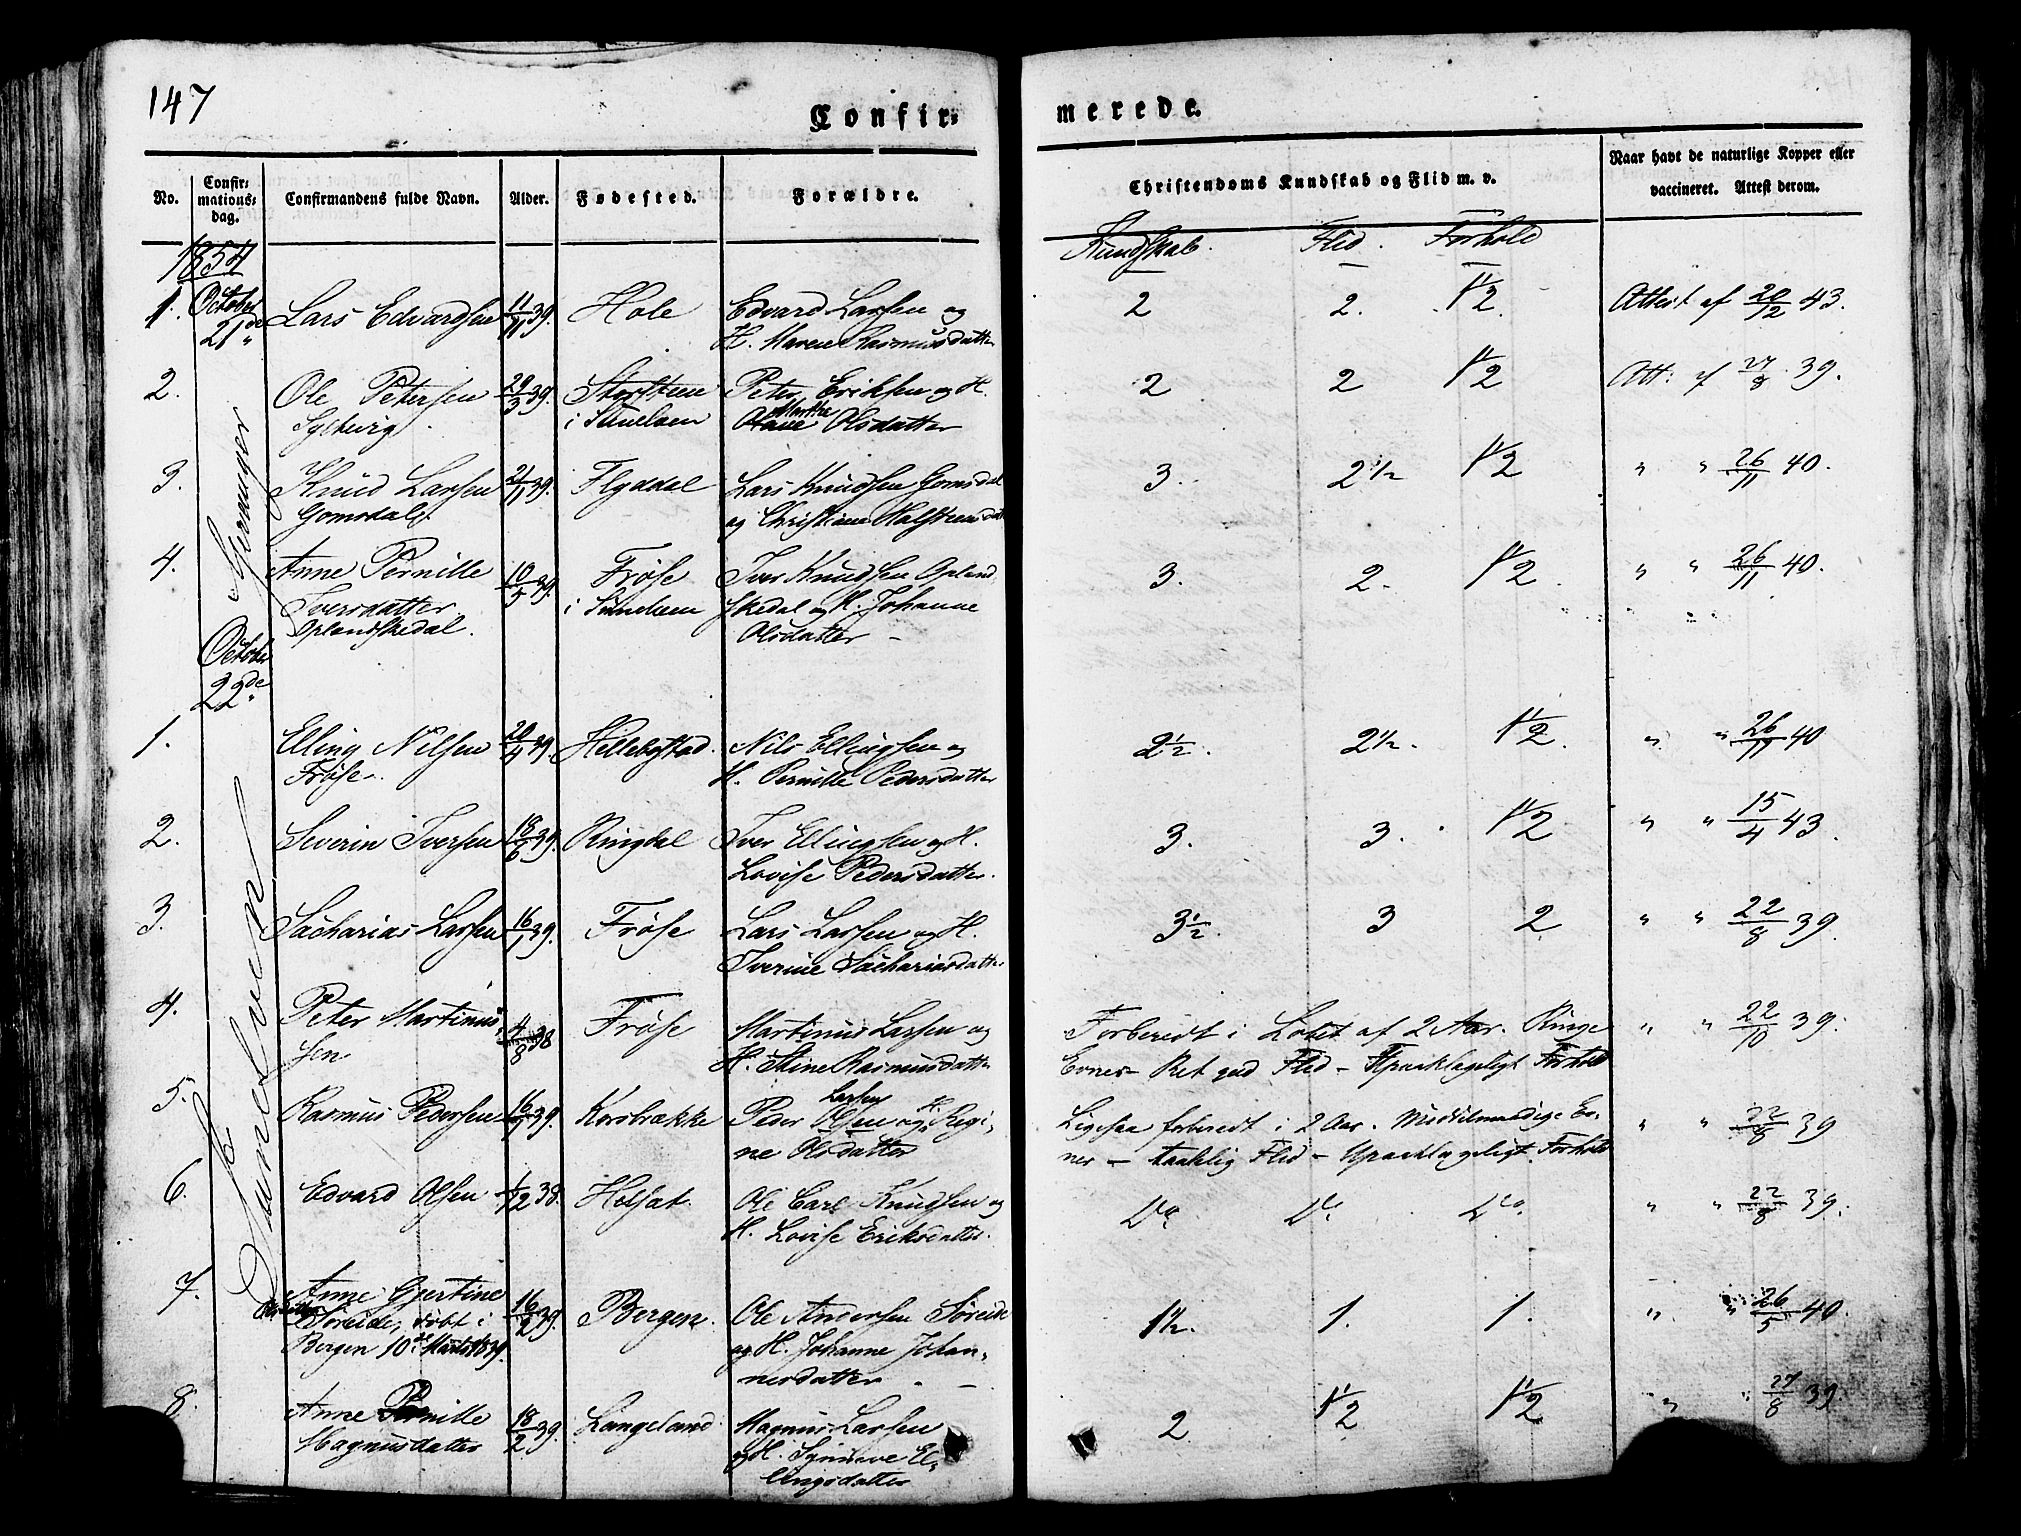 147
Confir=
merede.
No.
Confir=
mations=
dag.
Confirmandens fulde Navn.
Alder.
Fødested.
Forældre.
Christendoms Kundskab og Flid m. v.
Naar havt de naturlige Kopper eller
vaccineret. Attest derom.
1854
Kundskab. Flid. Forhold
1. October 21de Lars Edvardsen 11/11 39. Hole Edvard Larsen og 2 2. 1 1/2. Attest af 20/12 43.
H. Maren Rasmusdatter
2. Ole Petersen 29/3 39. Peter Eriksen og H. 2 2 1 1/2 Att: af 27/8 39.
Marthe
Olsdatter
Geiranger
3. Knud Larsen 21/11 39. Flyddal Lars Knudsen Gomsdal 3. 2 1/2 1 1/2 " " 26/11 40.
Gomsdal og Christiane
4. Anne Pernille 10/5 39. Frøse Iver Knudsen Opland 3. 2. 1 1/2 " " 26/11 40.
Iversdatter i Sunelven skedal og H. Johanne
Oplandskedal. Olsdatter
October
22de
Sunelven
1. Elling Nilsen 20/4 39. Hellebostad Nils Ellingsen og 2 1/2. 2 1/2. 1 1/2. " " 26/11 40
Frøse. H. Pernille Pedersdatter
2. Severin Iversen 18/6 39. Ringdal Iver Ellingsen og H. 3. 3. 1 1/2 " " 15/4 43.
Lovise Pedersdatter.
3. Sacharias Larsen 16/1 39. Frøse Lars Larsen og H. 3 1/2. 3 2 " " 22/8 39.
Iverine Sachariasdatter
4. Peter Martinus= 4/8 38 Frøse Martinus Larsen og Forberedt i Løbet af 2 Aar. Ringe " " 22/10 39.
sen H. Stine Rasmusdatter Evner – Ret god Flid – Upaaklageligt Forhold
Larsen
5. Rasmus Pedersen 39. Korsbrække Peder Olsen og H. Regi= Ligesaa forberedt i 2 Aar. Middelmaadige Ev= " " 22/8 39
ne Olsdatter ner – taalelig Flid – Upaaklageligt Forhold
6. Edvard Olsen 1/12 38. Ole Carl Knudsen og Do. Do. Do. " " 22/8 39.
H. Lovise Eriksdatter.
7. Anne Gjertine 16/2 39. Bergen. Ole Andersen Søreide 1 1/2. 1. 1. " " 26/5 40.
Olsdatter Søreide, døbt i og H. Johanne Johan=
Bergen 10de Marts 1839. nesdatter
8. Anne Pernille 18/2 39. Langeland Magnus Larsen 2 1 1/2 1 1/2 " " 27/8 39.
Magnusdatter og H. Synneve El=
lingsdatter